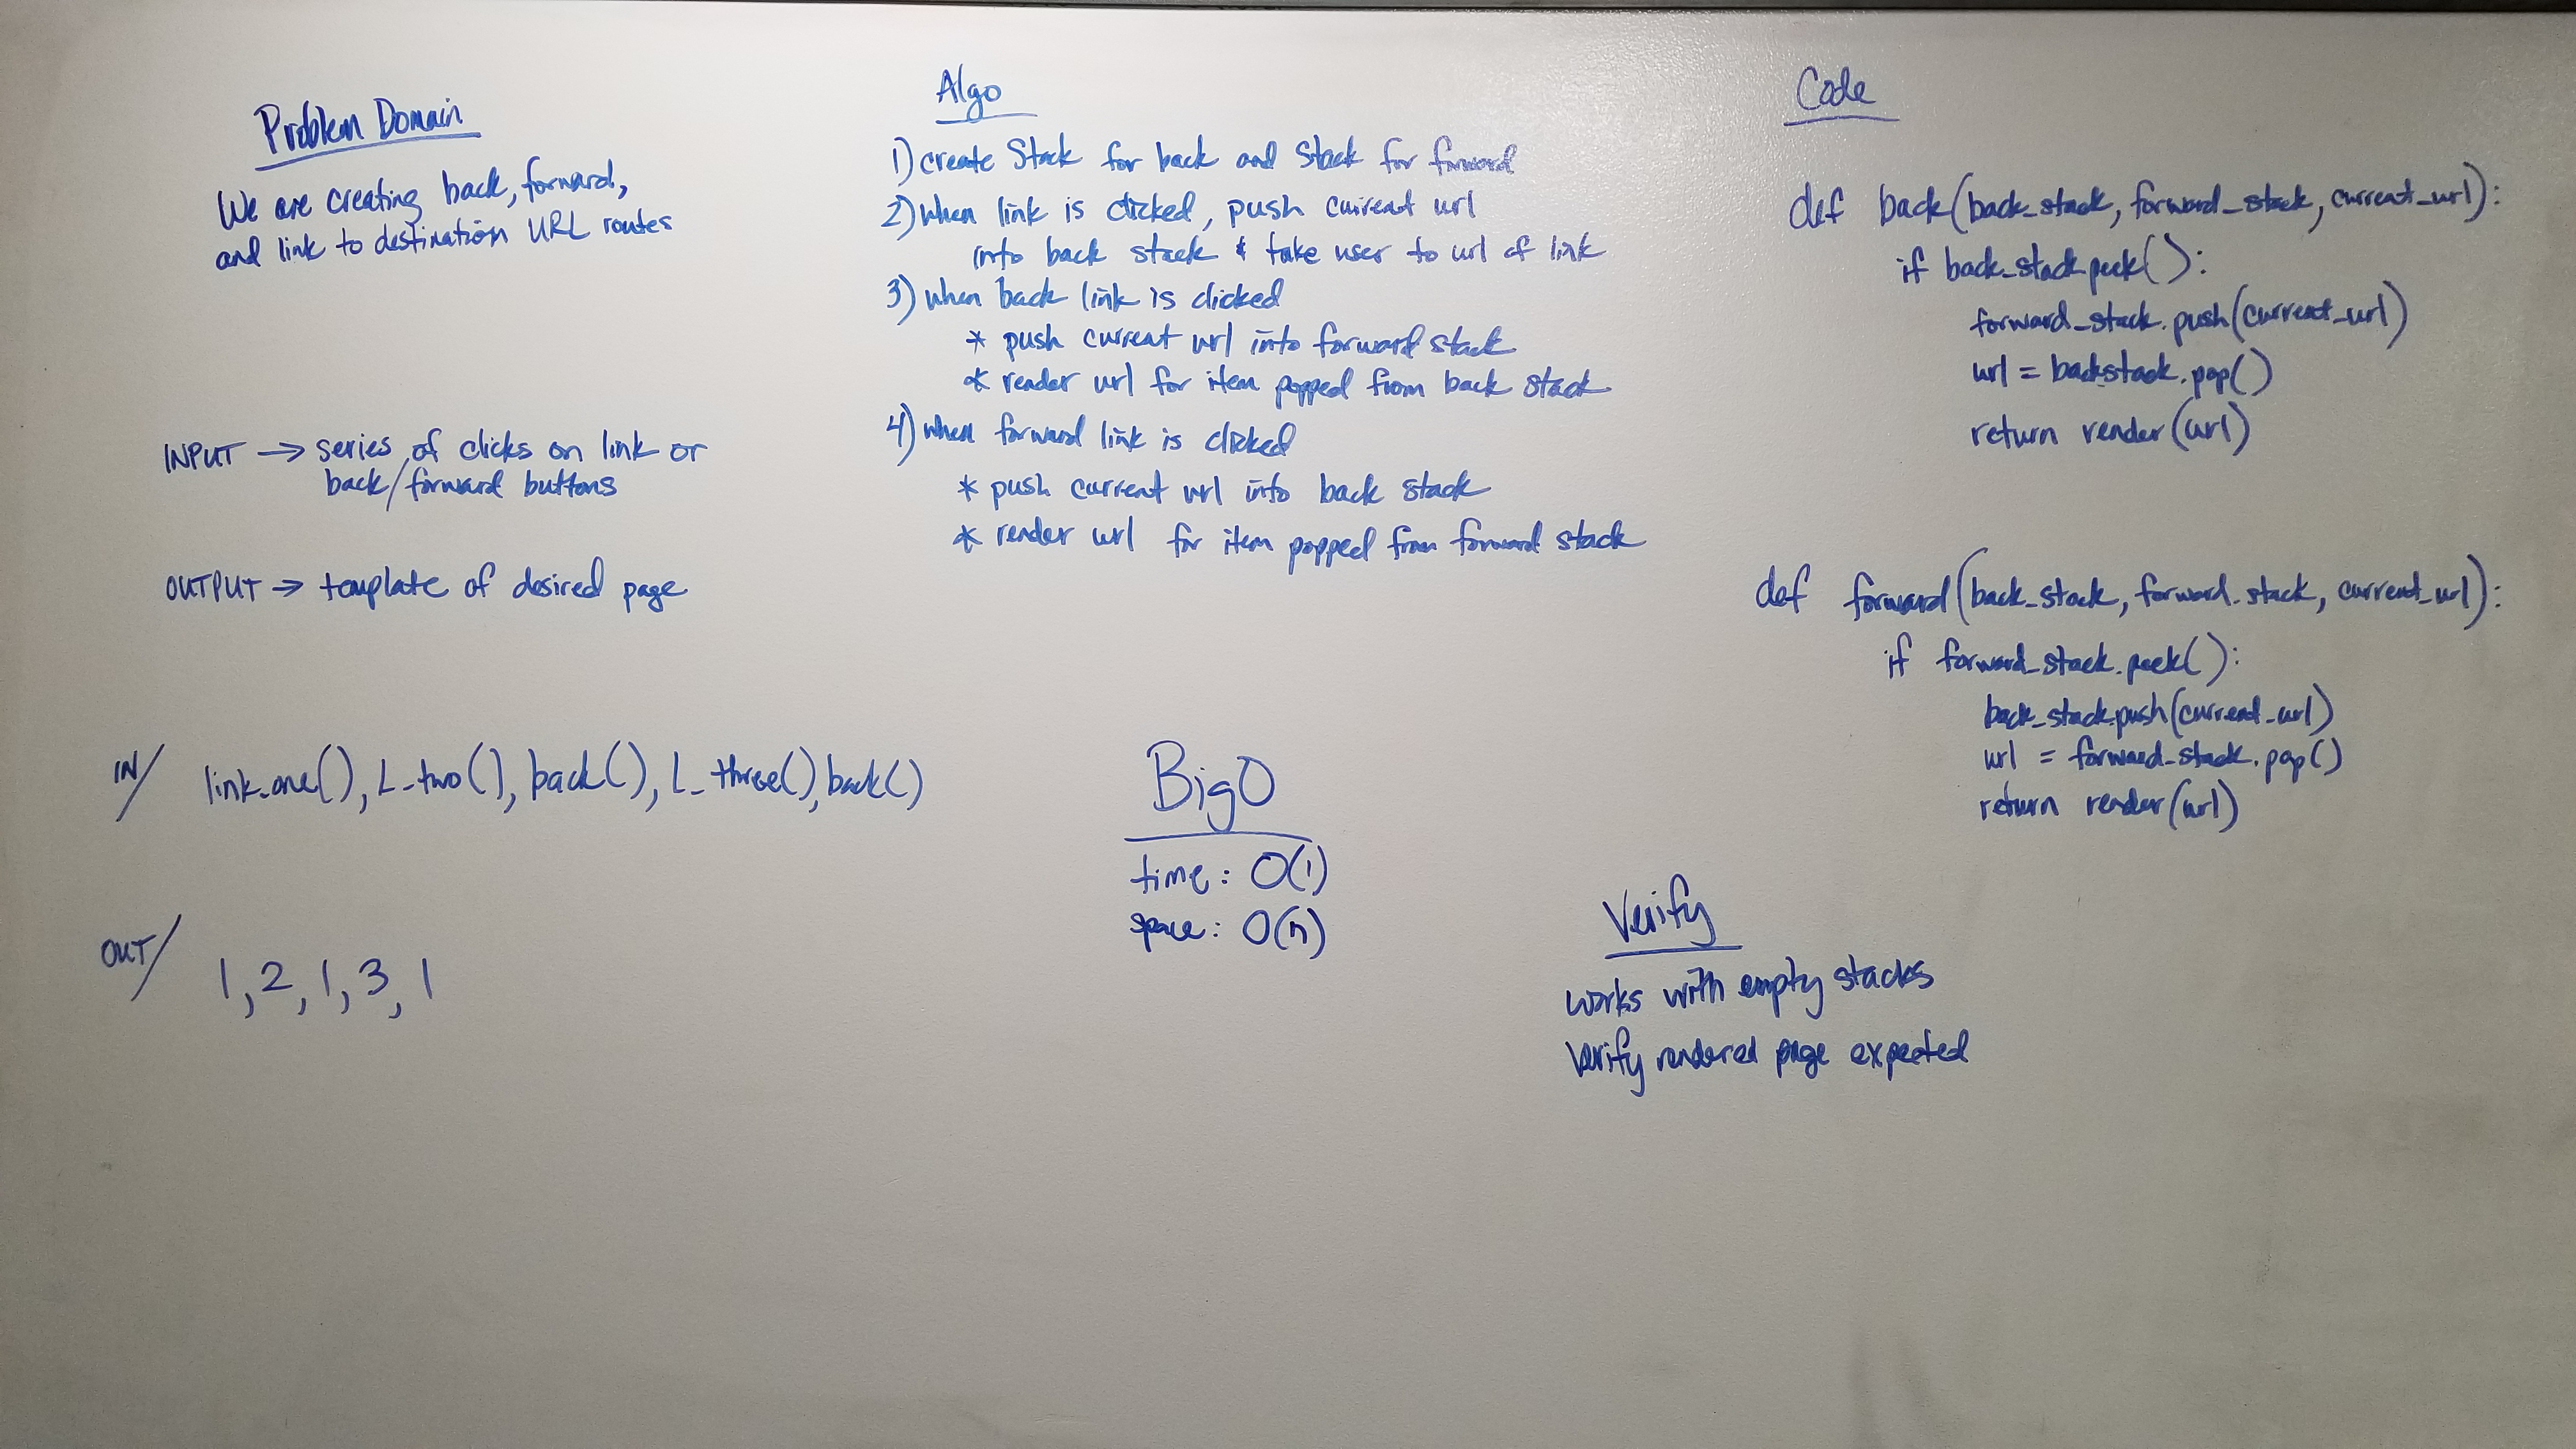 Problem Domain
We are creating back, forward,
and link to destination URL routes
INPUT → series of clicks on link or
back/forward buttons
OUTPUT → template of desired page
IN/ link_one(), L_two(), back(), L_three(), back()
OUT/ 1, 2, 1, 3, 1
Algo
1) create Stack for back and Stack for forward
2) when link is clicked, push current url
into back stack & take user to url of link
3) when back link is clicked
* push current url into forward stack
* render url for item popped from back stack
4) when forward link is clicked
* push current url into back stack
* render url for item popped from forward stack
Big O
time: O(1)
space: O(n)
Code
def back(back_stack, forward_stack, current_url):
if back_stack.peek():
forward_stack.push(current_url)
url = backstack.pop()
return render(url)
def forward(back_stack, forward_stack, current_url):
if forward_stack.peek():
back_stack.push(current_url)
url = forward_stack.pop()
return render(url)
Verify
works with empty stacks
Verify rendered page expected